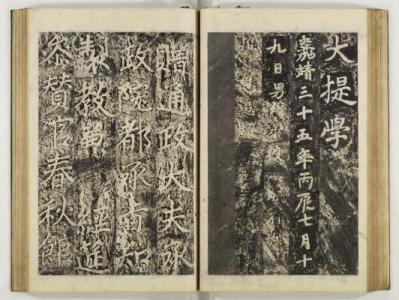 大提學
嘉靖三十五年丙辰七月十
九日男
贈通政大夫承
政院都承旨知
製教兼經筵
參贊官春秋館